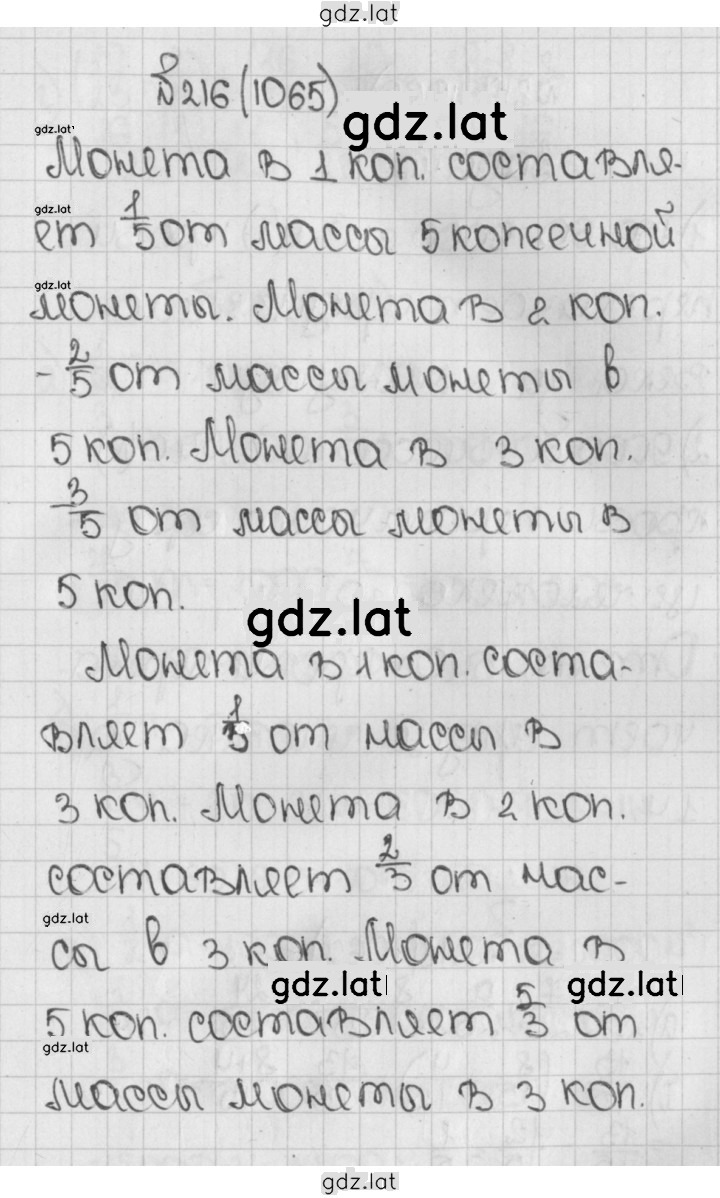 gdz.lat
№216(1065)
gdz.lat
gdz.lat
Монета в 1 коп. составля-
gdz.lat
ет 1/5 от массы 5 копеечной
gdz.lat
монеты. Монета в 2 коп.
- 2/5 от массы монеты в
5 коп. Монета в 3 коп.
- 3/5 от массы монеты в
5 коп.
gdz.lat
Монета в 1 коп. соста-
вляет 1/3 от массы в
3 коп. Монета в 2 коп.
составляет 2/3 от мас-
gdz.lat
сы в 3 коп. Монета в
gdz.lat gdz.lat
5 коп. составляет 5/3 от
gdz.lat
массы монеты в 3 коп.
gdz.lat